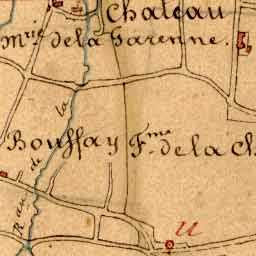 Chateau
M.rie de la Garenne.
Bouffay F.me de la Ch
R.au de la
U